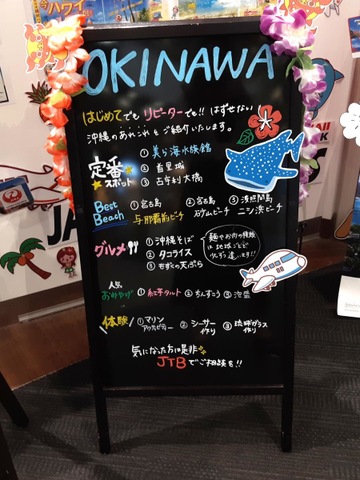 OKINAWA
はじめてでもリピーターでも!! はずせない
沖縄のあれこれをご紹介いたします。
定番スポット
①美ら海水族館
②首里城
③古宇利大橋
Best Beach
①宮古島 与那覇前ビーチ
②石垣島 サンセットビーチ
③波照間島 ニシ浜ビーチ
グルメ
①沖縄そば
②タコライス
③もずくの天ぷら
麺やお肉の種類など地域ごとで少しずつ違います!!
人気 おみやげ ①紅芋タルト ②ちんすこう ③泡盛
体験 ①マリンアクティビティー ②シーサー作り ③琉球ガラス作り
気になった方は是非
JTBでご相談を!!
ハワイ
JAL